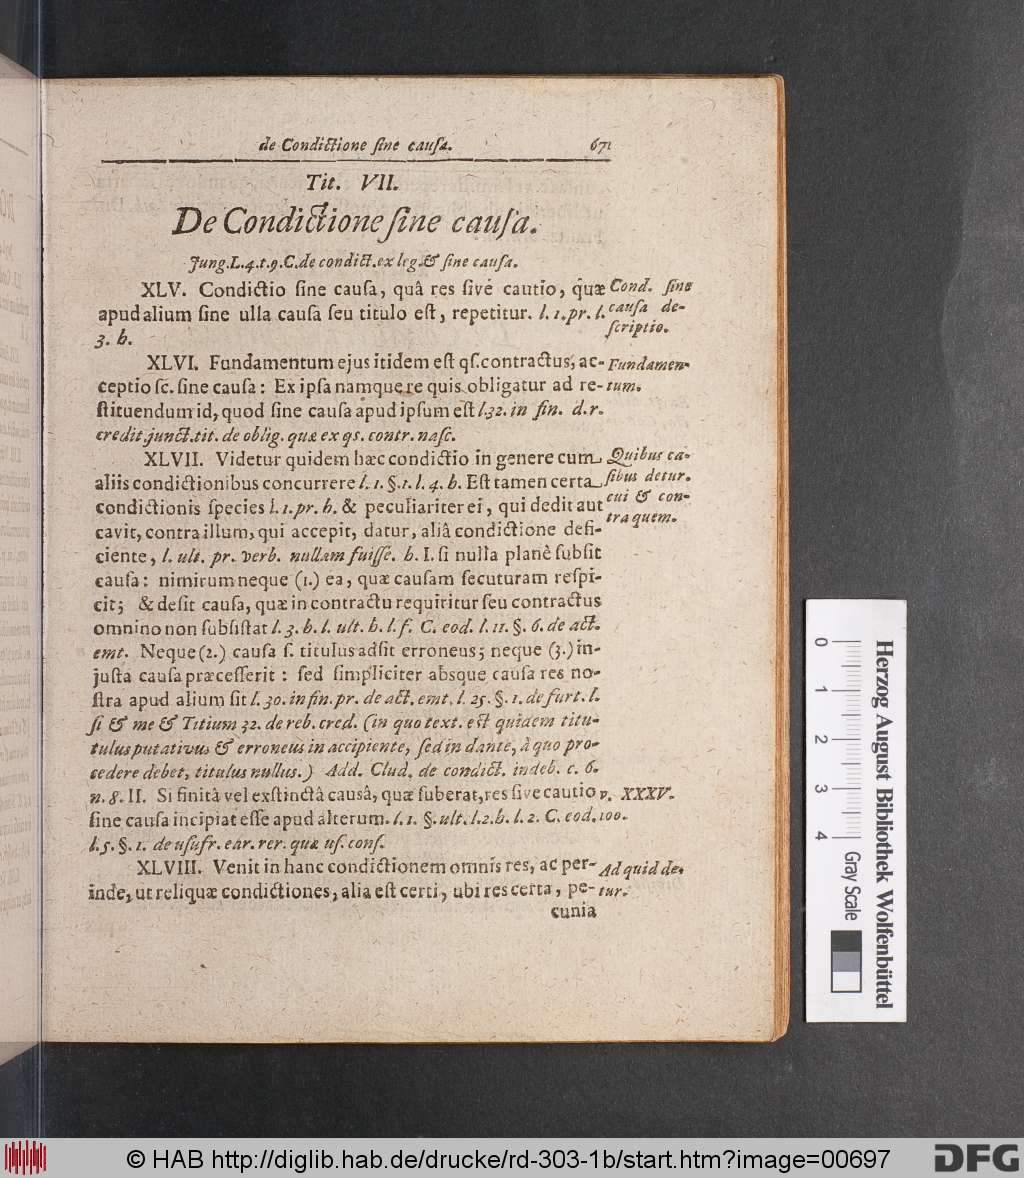 de Condictione ſine cauſa. 671
Tit. VII.
De Condictione ſine cauſa.
Jung. L. 4. t. 9. C. de condict. ex leg. & ſine cauſa.
XLV. Condictio ſine cauſa, quâ res ſive cautio, quæ
apud alium ſine ulla cauſa ſeu titulo eſt, repetitur. l. 1. pr. l.
3. h.
Cond. ſine
cauſa de-
ſcriptio.
XLVI. Fundamentum ejus itidem eſt qſ. contractus, ac-
ceptio ſc. ſine cauſa: Ex ipſa namque re quis obligatur ad re-
ſtituendum id, quod ſine cauſa apud ipſum eſt l. 32. in fin. d. r.
credit. junct. tit. de oblig. quæ ex qs. contr. naſc.
Fundamen-
tum.
XLVII. Videtur quidem hæc condictio in genere cum
aliis condictionibus concurrere l. 1. §. 1. l. 4. h. Eſt tamen certa
condictionis ſpecies l. 1. pr. h. & peculiariter ei, qui dedit aut
cavit, contra illum, qui accepit, datur, aliâ condictione defi-
ciente, l. ult. pr. verb. nullam fuiſſe. h. I. ſi nulla planè ſubſit
cauſa: nimirum neque (1.) ea, quæ cauſam ſecuturam reſpi-
cit; & deſit cauſa, quæ in contractu requiritur ſeu contractus
omnino non ſubſiſtat l. 3. h. l. ult. h. l. f. C. eod. l. 11. §. 6. de act.
emt. Neque (2.) cauſa ſ. titulus adſit erroneus; neque (3.) in-
juſta cauſa præceſſerit: ſed ſimpliciter absque cauſa res no-
ſtra apud alium ſit l. 30. in fin. pr. de act. emt. l. 25. §. 1. de furt. l.
ſi & me & Titium 32. de reb. cred. (in quo text. eſt quidem titu-
lus putativus & erroneus in accipiente, ſed in dante, à quo pro-
cedere debet, titulus nullus.) Add. Clud. de condict. indeb. c. 6.
n. 8. II. Si finitâ vel exſtinctâ causâ, quæ fuberat, res ſive cautio
ſine cauſa incipiat eſſe apud alterum. l. 1. §. ult. l. 2. h. l. 2. C. eod.
l. 5. §. 1. de uſufr. ear. rer. quæ uſ. conſ.
Quibus ca-
ſibus detur.
cui & con-
tra quem.
v. XXXV.
100.
XLVIII. Venit in hanc condictionem omnis res, ac per-
inde, ut reliquæ condictiones, alia eſt certi, ubi res certa, pe-
cunia
Ad quid de-
tur.
0 1 2 3 4
Gray Scale
Herzog August Bibliothek Wolfenbüttel
© HAB http://diglib.hab.de/drucke/rd-303-1b/start.htm?image=00697
DFG